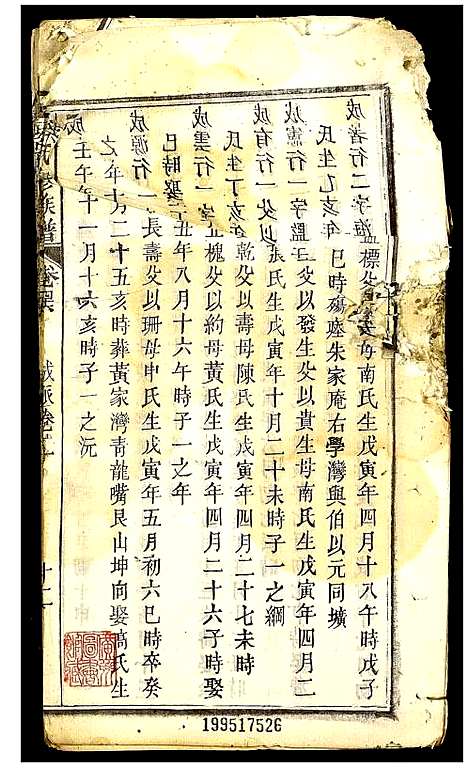 成著行二字海
標父 母南氏生戊寅年四月十八午時戊子
氏生乙亥年
巳時殤塟朱家庵右學灣與伯以元同壙
成憲行一字
父以發生父以貴生母南氏生戊寅年四月二
成有行一父以
張氏生戊寅年十月二十未時子一之綱
氏生丁亥
乾父以壽母陳氏生戊寅年四月二十七未時
成雲行一字
槐父以約母黃氏生戊寅年四月二十六子時娶
巳時娶
丑年八月十六午時子一之年
成源行一
長壽父以珊母申氏生戊寅年五月初六巳時卒癸
之年十月二十五亥時葬黃家灣青龍嘴艮山坤向娶高氏生
壬午年十一月十六亥時子一之沅
成
氏 修族譜 卷
成派卷
十二
199517526